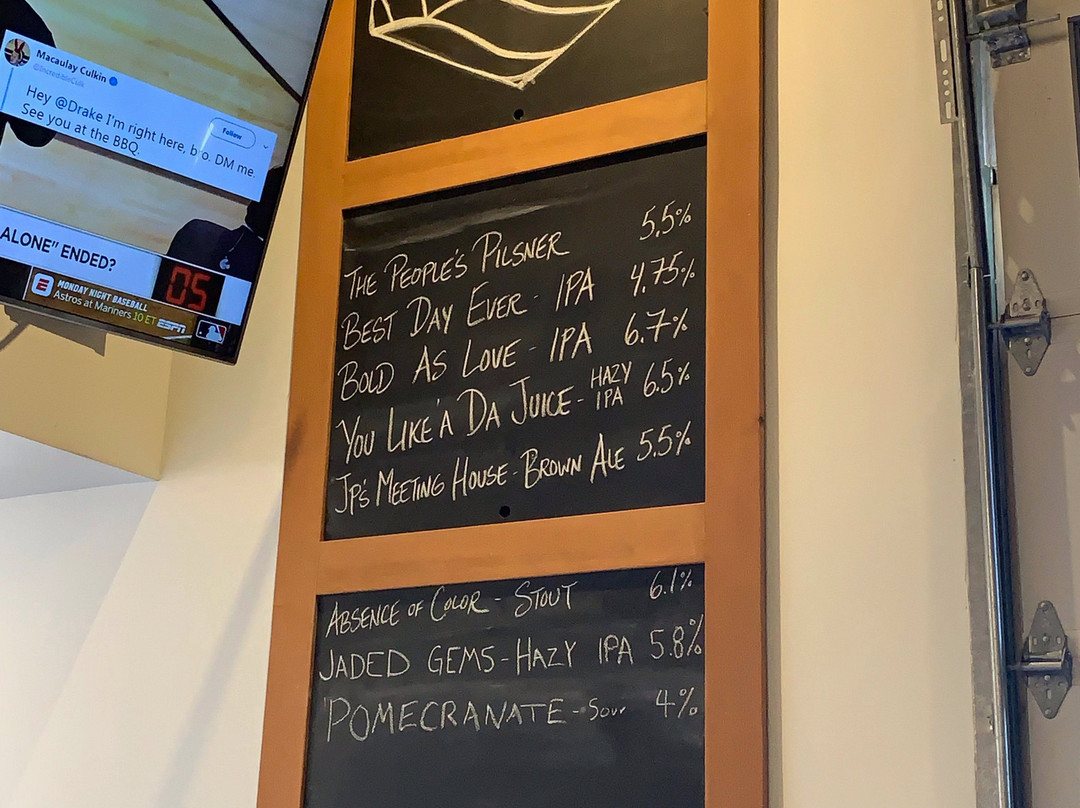 Macaulay Culkin
@IncredibleCulk
Follow
Hey @Drake I'm right here, bro. DM me.
See you at the BBQ.
ALONE" ENDED?
05
E
MONDAY NIGHT BASEBALL
Astros at Mariners 10 ET ESPN
THE PEOPLE'S PILSNER 5.5%
BEST DAY EVER - IPA 4.75%
BOLD AS LOVE - IPA 6.7%
YOU LIKE'A DA JUICE - HAZY IPA 6.5%
JP'S MEETING HOUSE - BROWN ALE 5.5%
ABSENCE OF COLOR - STOUT 6.1%
JADED GEMS - HAZY IPA 5.8%
POMECRANATE - Sour 4%